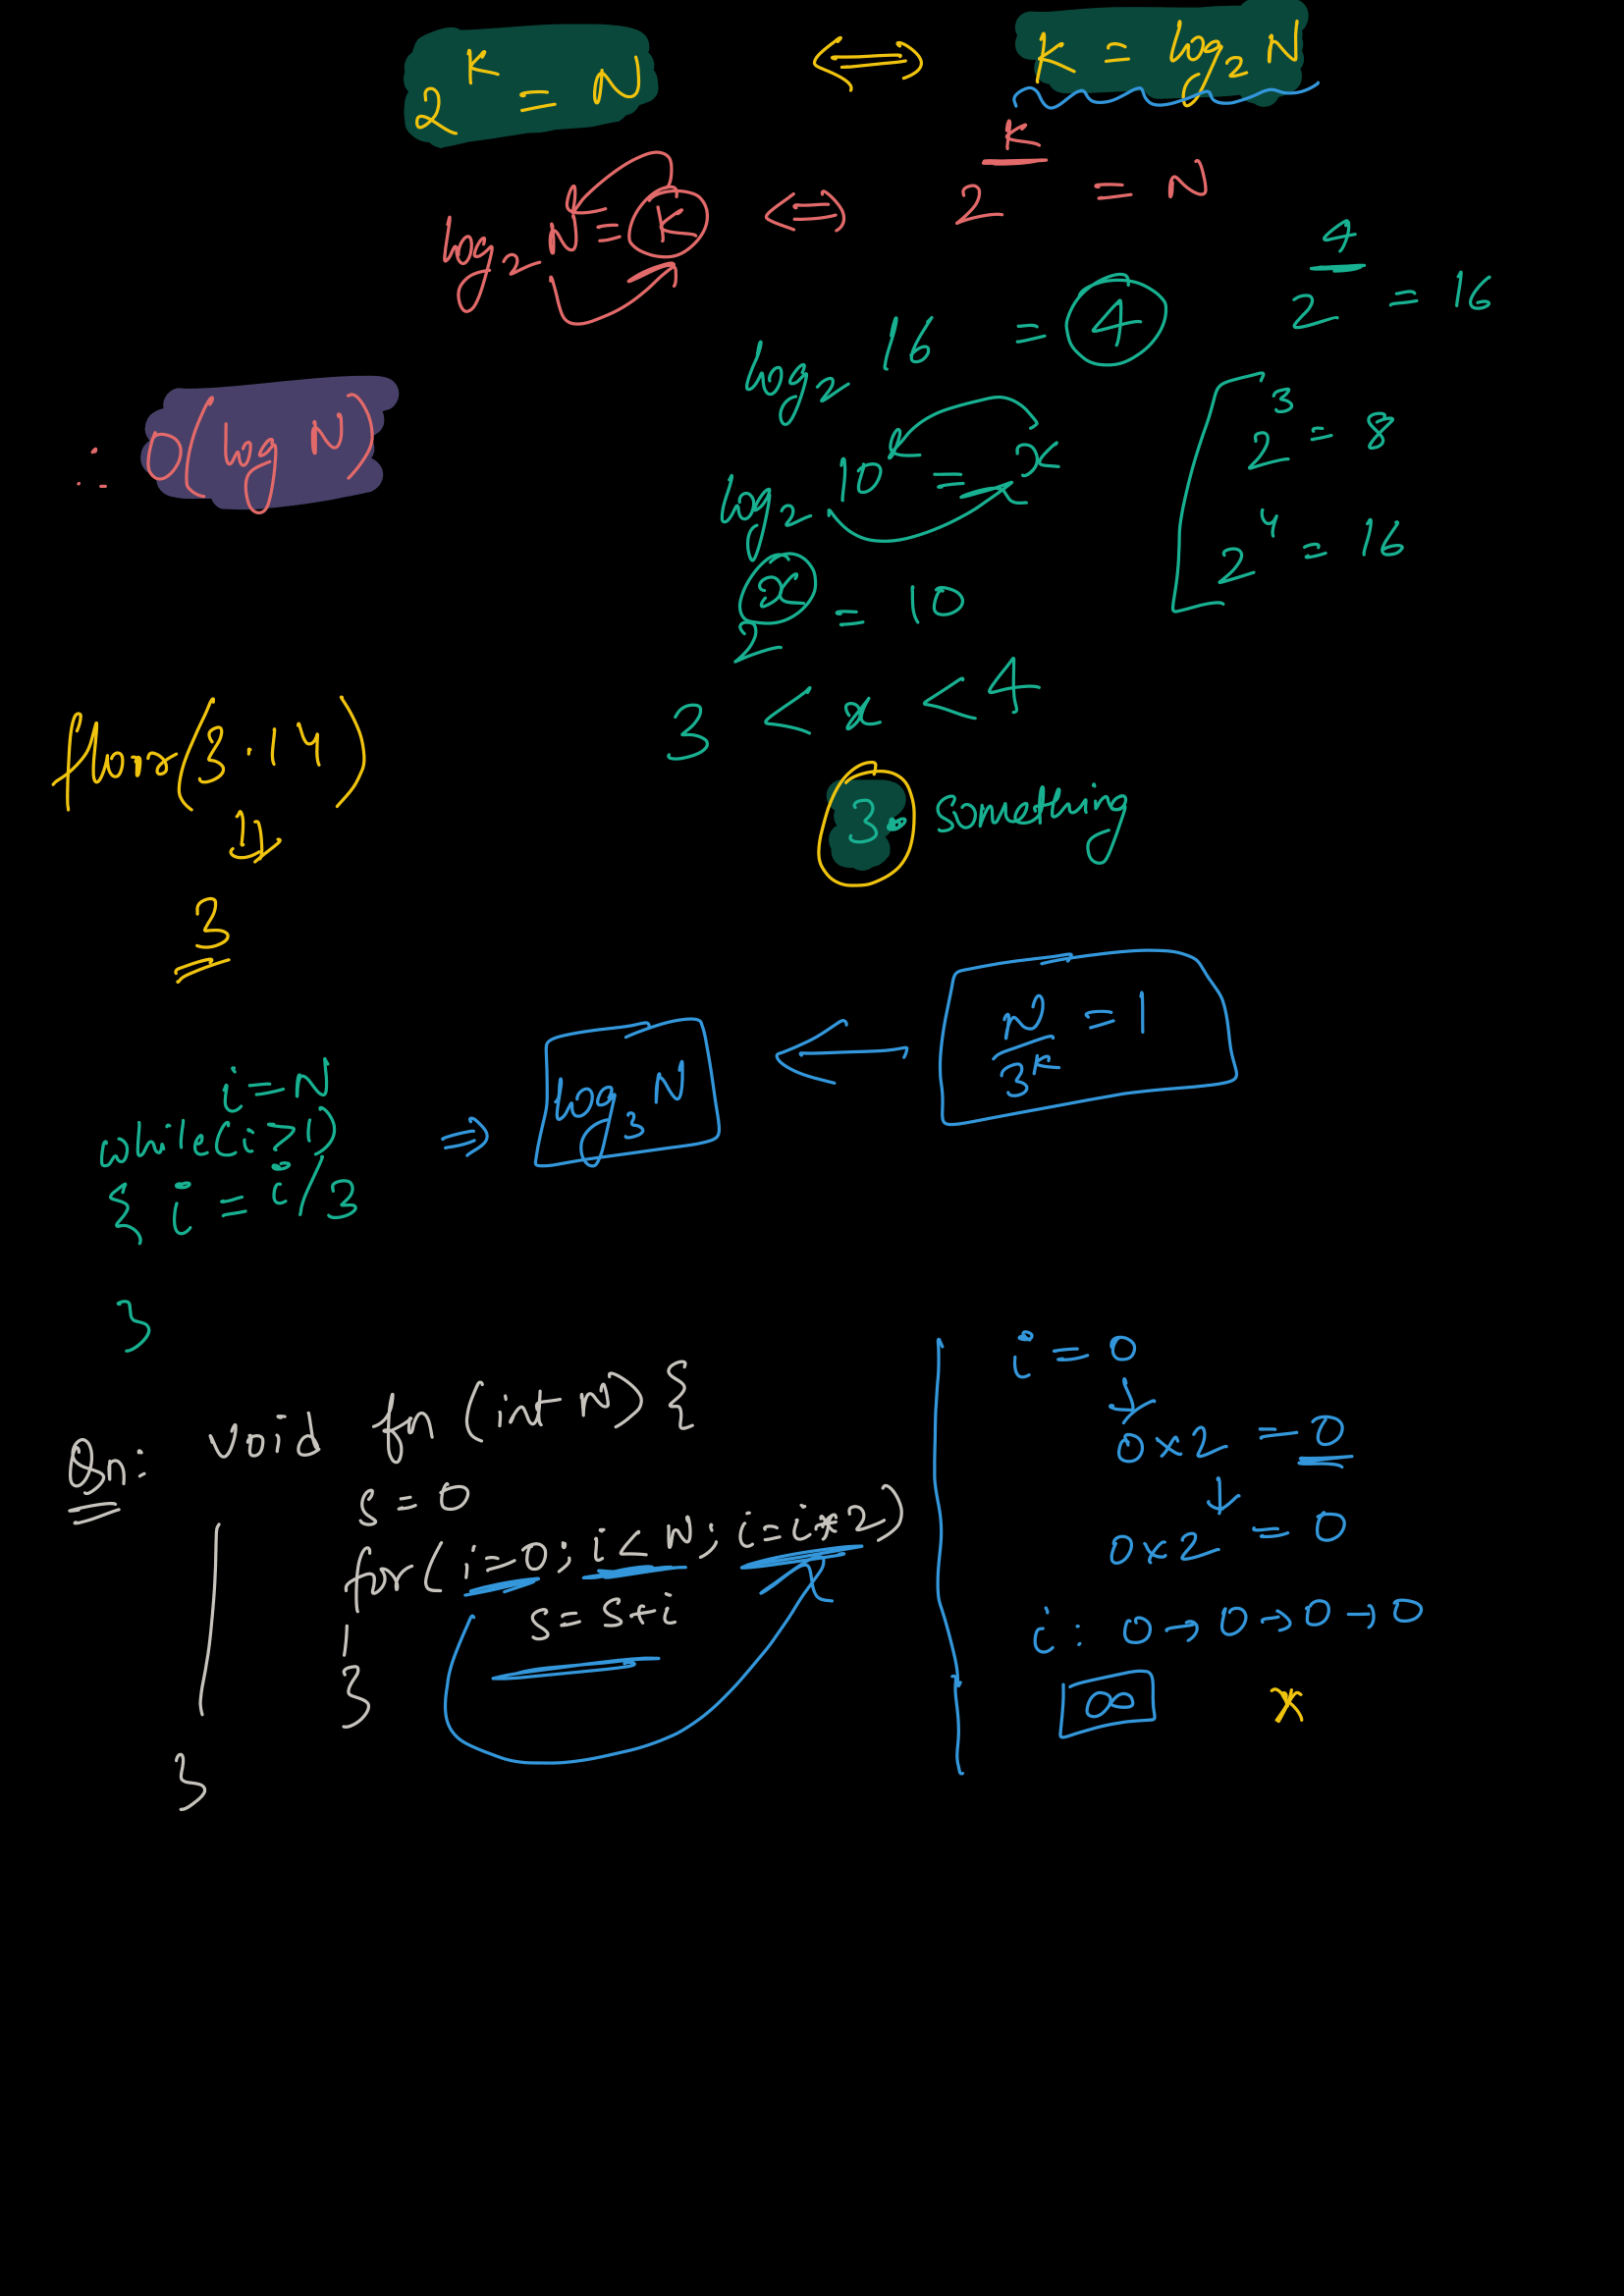 2^K = N ⟺ K = log₂ N
log₂ N = K ⟺ 2^K = N
log₂ 16 = 4 2^4 = 16
∴ O(log N)
log₂ 10 = x
2^x = 10
2^3 = 8
2^4 = 16
3 < x < 4
3. something
floor(3.14)
⇓
3
i = N
while(i > 1)
{ i = i/3
}
⇒ log₃ N ← N/3^K = 1
Qn: void fn (int N) {
s = 0
for( i=0; i < N; i=i*2)
s = s+i
}
}
i = 0
↓
0 x 2 = 0
↓
0 x 2 = 0
i : 0 → 0 → 0 → 0
∞ x